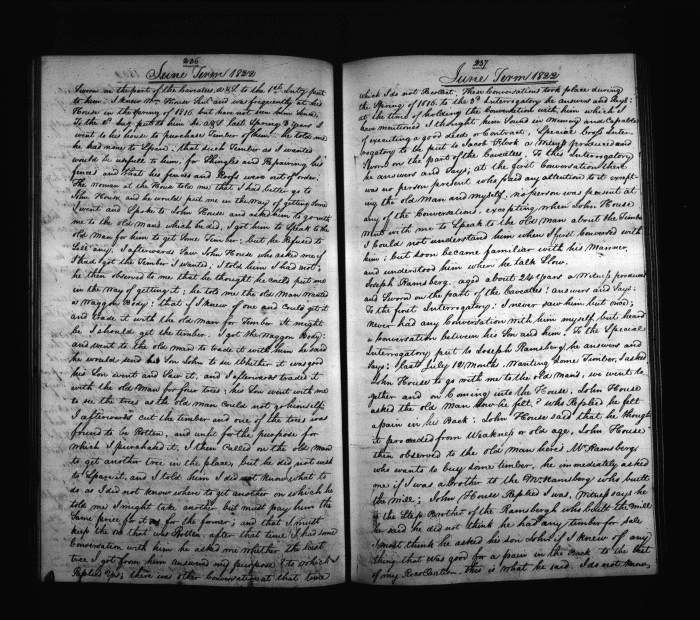 236
June Term 1822
Sworn on the part of the Caveatees, to the 1st Inty put
to him: I knew Wm House and was frequently at his
House in the Spring of 1816 but have not seen him since,
to the 6th Inty put to him he ays last Spring 3 years I
went to his house to purchase Timber of him: he told me
he had none to Spare; that such Timber as I wanted
would be usefull to him, for Shingles and Repairing his
fences and that his fences and Roofs were out of order;
The woman at the House told me that I had better go to
John House and he would put me in the way of getting some
I went and Spoke to John House and asked him to go with
me to the old mans which he did, I got him to Speak to the
old Man for him to get some Timber; but he Refused to
Let any. I afterwards Saw John House who asked me if
I had got the Timber I wanted; I told him I had not;
he then observed to me that he thought he could put me
in the way of getting it; he told me the old Man wanted
a Waggon Body: that if I knew of one and could get it
and trade it with the old Man for Timber It might
be I should get the timber. I got the Waggon Body:
and went to the old Man to trade it with him he said
he would send his Son John to see Whether it was good
his Son went and Saw it, and I afterwards traded it
with the old Man for four trees; his Son went with me
to see the trees as the old man could not go himself;
I afterwards cut the timber and one of the trees was
found to be Rotten, and unfit for the purpose for
which I purchased it, I then Called on the old man
to get another tree in the place, but he did not wish
to Spare it, and I told him I did not know what to
do as I did not know where to get another on which he
told me I might take another but must pay him the
Same price for it as for the former; and that I must
keep the one that was Rotten after that time I had some
Conversation with him he asked me whether the last
tree I got from him answered my purpose & to which I
Replied yes; there was other Conversation at that time
237
June Term 1822
which I do not Recollect. These Conversations took place during
the Spring of 1816 to the 3d Interrogatory he answers and Says:
at the time of holding the Conversation with him which I
have mentioned I thought him Sound in Memory and Capable
of executing a good Deed or Contract, Special Cross Inter-
rogatory to the put to Jacob Flook a Witness produced and
Sworn on the part of the Caveatees: To this Interrogatory
he answers and Says; at the first Conversation there
was no person present who paid any attention to it except-
ing the old Man and Myself. no person was present at
any of the Conversations, excepting when John House
went with me to Speak to the old Man about the Timber
I could not understand him when I first Conversed with
him; but soon became familiar with his Manner,
and understood him when he talk Slow.
Joseph Ramsberg, aged about 24 Years a Witness produced
and Sworn on the part of the Caveatees: answers and Says:
To the first Interrogatory: I never saw him but once;
Never had any Conversation with him myself, but heard
a Conversation between his Son and him, To the Special
Interrogatory put to Joseph Ramsberg, he answers and
Says: last July 12 Months Wanting some Timber, I asked
John House to go with me to the old Mans, we went to-
gether and on Coming into the House, John House
asked the old Man how he felt? who Replied he felt
a pain in his Back: John House said that he thought
it proceeded from Weakness or old age, John House
then observed to the old man here's Mr Ramsberg
who wants to buy some timber, he immediately asked
me if I was a brother to the Mr Ramsberg who built
the Mill; John House Replied I was, Witness says he
is the Step Brother of the Ramsbergh who built the Mill
he said he did not think he had any timber for sale
I must think he asked his son John if I knew of any
thing that was good for a pain in the Back to the best
of my Recollection. This is what he said. I do not know,